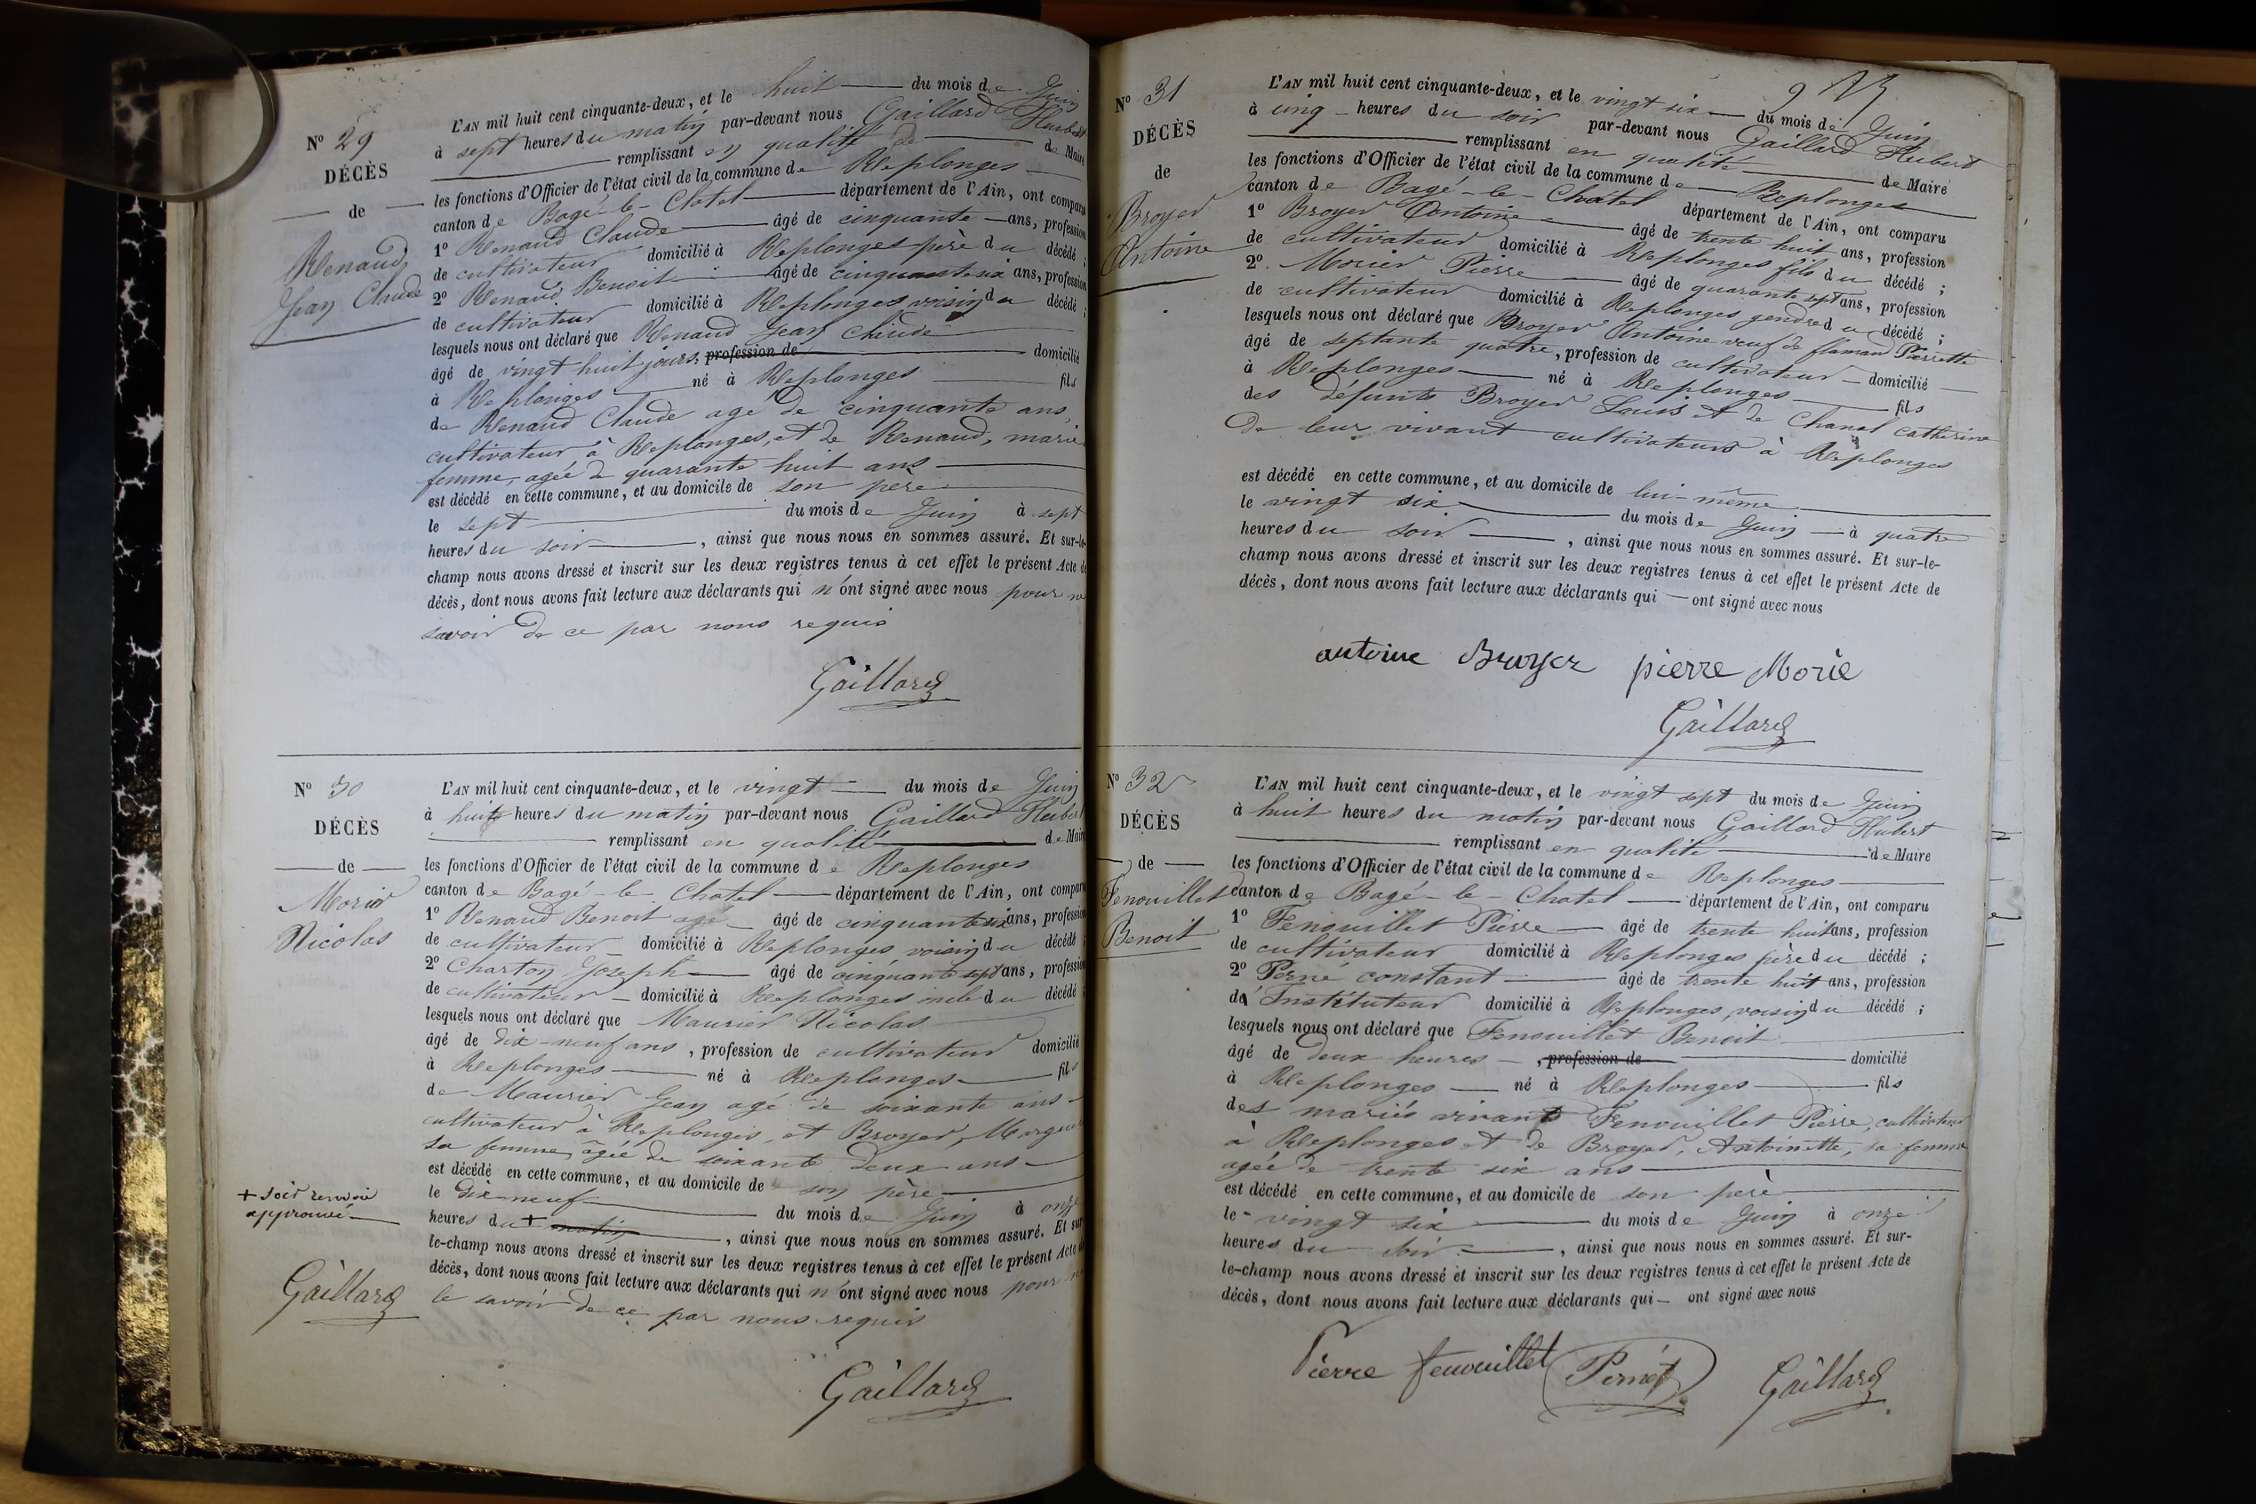 N° 29
DÉCÈS
de
Renaud
Jean Claude
L'AN mil huit cent cinquante-deux, et le huit du mois de Juin
à sept heures du matin par-devant nous Gaillard Hubert
remplissant en qualité de de Maire
les fonctions d'Officier de l'état civil de la commune de Replonges
canton de Bagé-le-Chatel département de l'Ain, ont comparu
1° Renaud Claude âgé de cinquante ans, profession
de cultivateur domicilié à Replonges père du décédé ;
2° Renaud Benoit âgé de cinquante six ans, profession
de cultivateur domicilié à Replonges voisin du décédé ;
lesquels nous ont déclaré que Renaud Jean Claude
âgé de vingt huit jours, profession de domicilié
à Replonges né à Replonges fils
de Renaud Claude agé de cinquante ans,
cultivateur à Replonges, et de Renaud, marie
femme, agée de quarante huit ans
est décédé en cette commune, et au domicile de son père
le sept du mois de Juin à sept
heures du soir, ainsi que nous nous en sommes assuré. Et sur-le-
champ nous avons dressé et inscrit sur les deux registres tenus à cet effet le présent Acte de
décès, dont nous avons fait lecture aux déclarants qui n'ont signé avec nous pour ne
savoir de ce par nous requis
Gaillard
N° 30
DÉCÈS
de
Morier
Nicolas
L'AN mil huit cent cinquante-deux, et le vingt du mois de Juin
à huit heures du matin par-devant nous Gaillard Hubert
remplissant en qualité de Maire
les fonctions d'Officier de l'état civil de la commune de Replonges
canton de Bagé-le-Chatel département de l'Ain, ont comparu
1° Renaud Benoit agé âgé de cinquante six ans, profession
de cultivateur domicilié à Replonges voisin du décédé ;
2° Charton Joseph âgé de cinquante sept ans, profession
de cultivateur domicilié à Replonges oncle du décédé ;
lesquels nous ont déclaré que Maurier Nicolas
âgé de dix-neuf ans, profession de cultivateur domicilié
à Replonges né à Replonges fils
de Maurier Jean agé de soixante ans
cultivateur à Replonges, et Broyer, Marguer
sa femme, agée de soixante deux ans
est décédé en cette commune, et au domicile de son père
le dix-neuf du mois de Juin à onze
heures du + matin, ainsi que nous nous en sommes assuré. Et sur
le-champ nous avons dressé et inscrit sur les deux registres tenus à cet effet le présent Acte de
décès, dont nous avons fait lecture aux déclarants qui n'ont signé avec nous pour ne
le savoir de ce par nous requis
+ soir renvoi
approuvé
Gaillard
Gaillard
9
N° 31
DÉCÈS
de
Broyer
Antoine
L'AN mil huit cent cinquante-deux, et le vingt six du mois de Juin
à cinq heures du soir par-devant nous Gaillard Hubert
remplissant en qualité de Maire
les fonctions d'Officier de l'état civil de la commune de Replonges
canton de Bagé-le-Châtel département de l'Ain, ont comparu
1° Broyer Antoine âgé de trente huit ans, profession
de cultivateur domicilié à Replonges fils du décédé ;
2° Morier Pierre âgé de quarante sept ans, profession
de cultivateur domicilié à Replonges gendre du décédé ;
lesquels nous ont déclaré que Broyer Antoine veuf de flamand Pierrette
âgé de septante quatre, profession de cultivateur domicilié
à Replonges né à Replonges fils
des défunts Broyer Louis et de Chanal catherine
de leur vivant cultivateurs à Replonges
est décédé en cette commune, et au domicile de lui-même
le vingt six du mois de Juin à quatre
heures du soir, ainsi que nous nous en sommes assuré. Et sur-le-
champ nous avons dressé et inscrit sur les deux registres tenus à cet effet le présent Acte de
décès, dont nous avons fait lecture aux déclarants qui ont signé avec nous
antoine Broyer pierre Morie
Gaillard
N° 32
DÉCÈS
de
Fenouillet
Benoit
L'AN mil huit cent cinquante-deux, et le vingt sept du mois de Juin
à huit heures du matin par-devant nous Gaillard Hubert
remplissant en qualité de Maire
les fonctions d'Officier de l'état civil de la commune de Replonges
canton de Bagé-le-Chatel département de l'Ain, ont comparu
1° Fenouillet Pierre âgé de trente huit ans, profession
de cultivateur domicilié à Replonges père du décédé ;
2° Perné constant âgé de trente huit ans, profession
d'Instituteur domicilié à Replonges, voisin du décédé ;
lesquels nous ont déclaré que Fenouillet Benoit
âgé de deux heures, profession de domicilié
à Replonges né à Replonges fils
des mariés vivants Fenouillet Pierre, cultivateur
à Replonges et de Broyer, Antoinette, sa femme
agée de trente six ans
est décédé en cette commune, et au domicile de son père
le vingt six du mois de Juin à onze
heures du soir, ainsi que nous nous en sommes assuré. Et sur-
le-champ nous avons dressé et inscrit sur les deux registres tenus à cet effet le présent Acte de
décès, dont nous avons fait lecture aux déclarants qui ont signé avec nous
Pierre fenouillet Pernét Gaillard